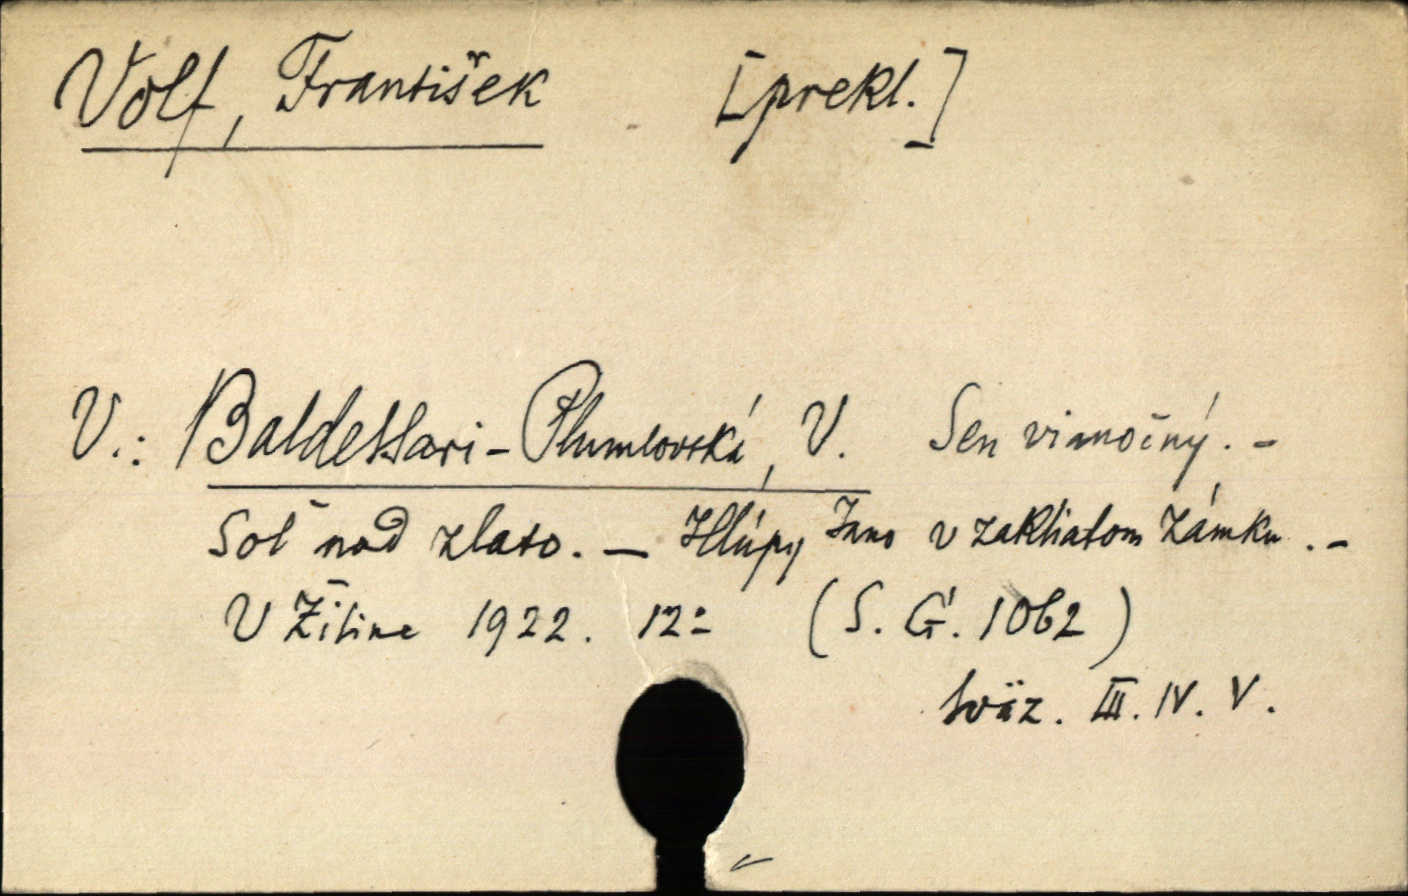 Volf, František [prekl.]
V.: Baldessari-Plumlovská, V. Sen vianočný. -
Soľ nad zlato. — Hlúpy Jano v zakliatom zámku. -
V Žiline 1922. 12° (S. G. 1062)
sväz. III. IV. V.